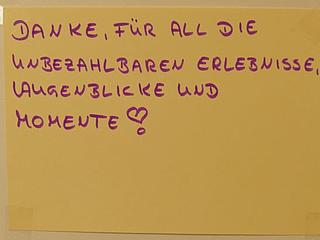 DANKE, FÜR ALL DIE
UNBEZAHLBAREN ERLEBNISSE,
AUGENBLICKE UND
MOMENTE